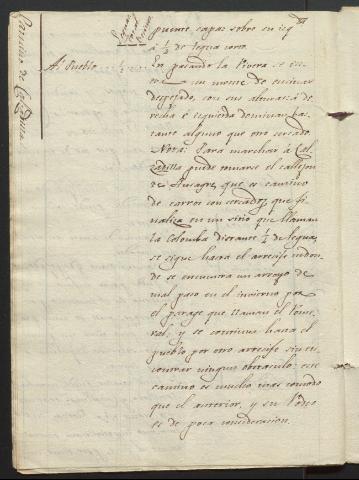 Camino de Calzadilla
puente, capaz sobre su izqda
á ½ de legua corto
Al Pueblo ½
En pasando la Rivera se en-
cra un monte de encinas
despejado, con su
recha é izquierda dominan bas-
tante alguno que otro cercado.
Nota: Para marchar á Cal-
zadilla puede tomarse el callejon
de Bucagre, que es camino
de carros con cercados, que fi-
naliza en un sitio que llaman
la Colomba distante ½ de legua,
se sigue hasta el arrecife en don-
de se encuentra un arroyo de
mal paso en el invierno por
el parage que llaman el
ral, y se continua hasta el
pueblo por otro arrecife sin en-
contrar ningun obstaculo: este
camino es mucho mas comodo
que el anterior, y su rodeo
es de poca consideracion.